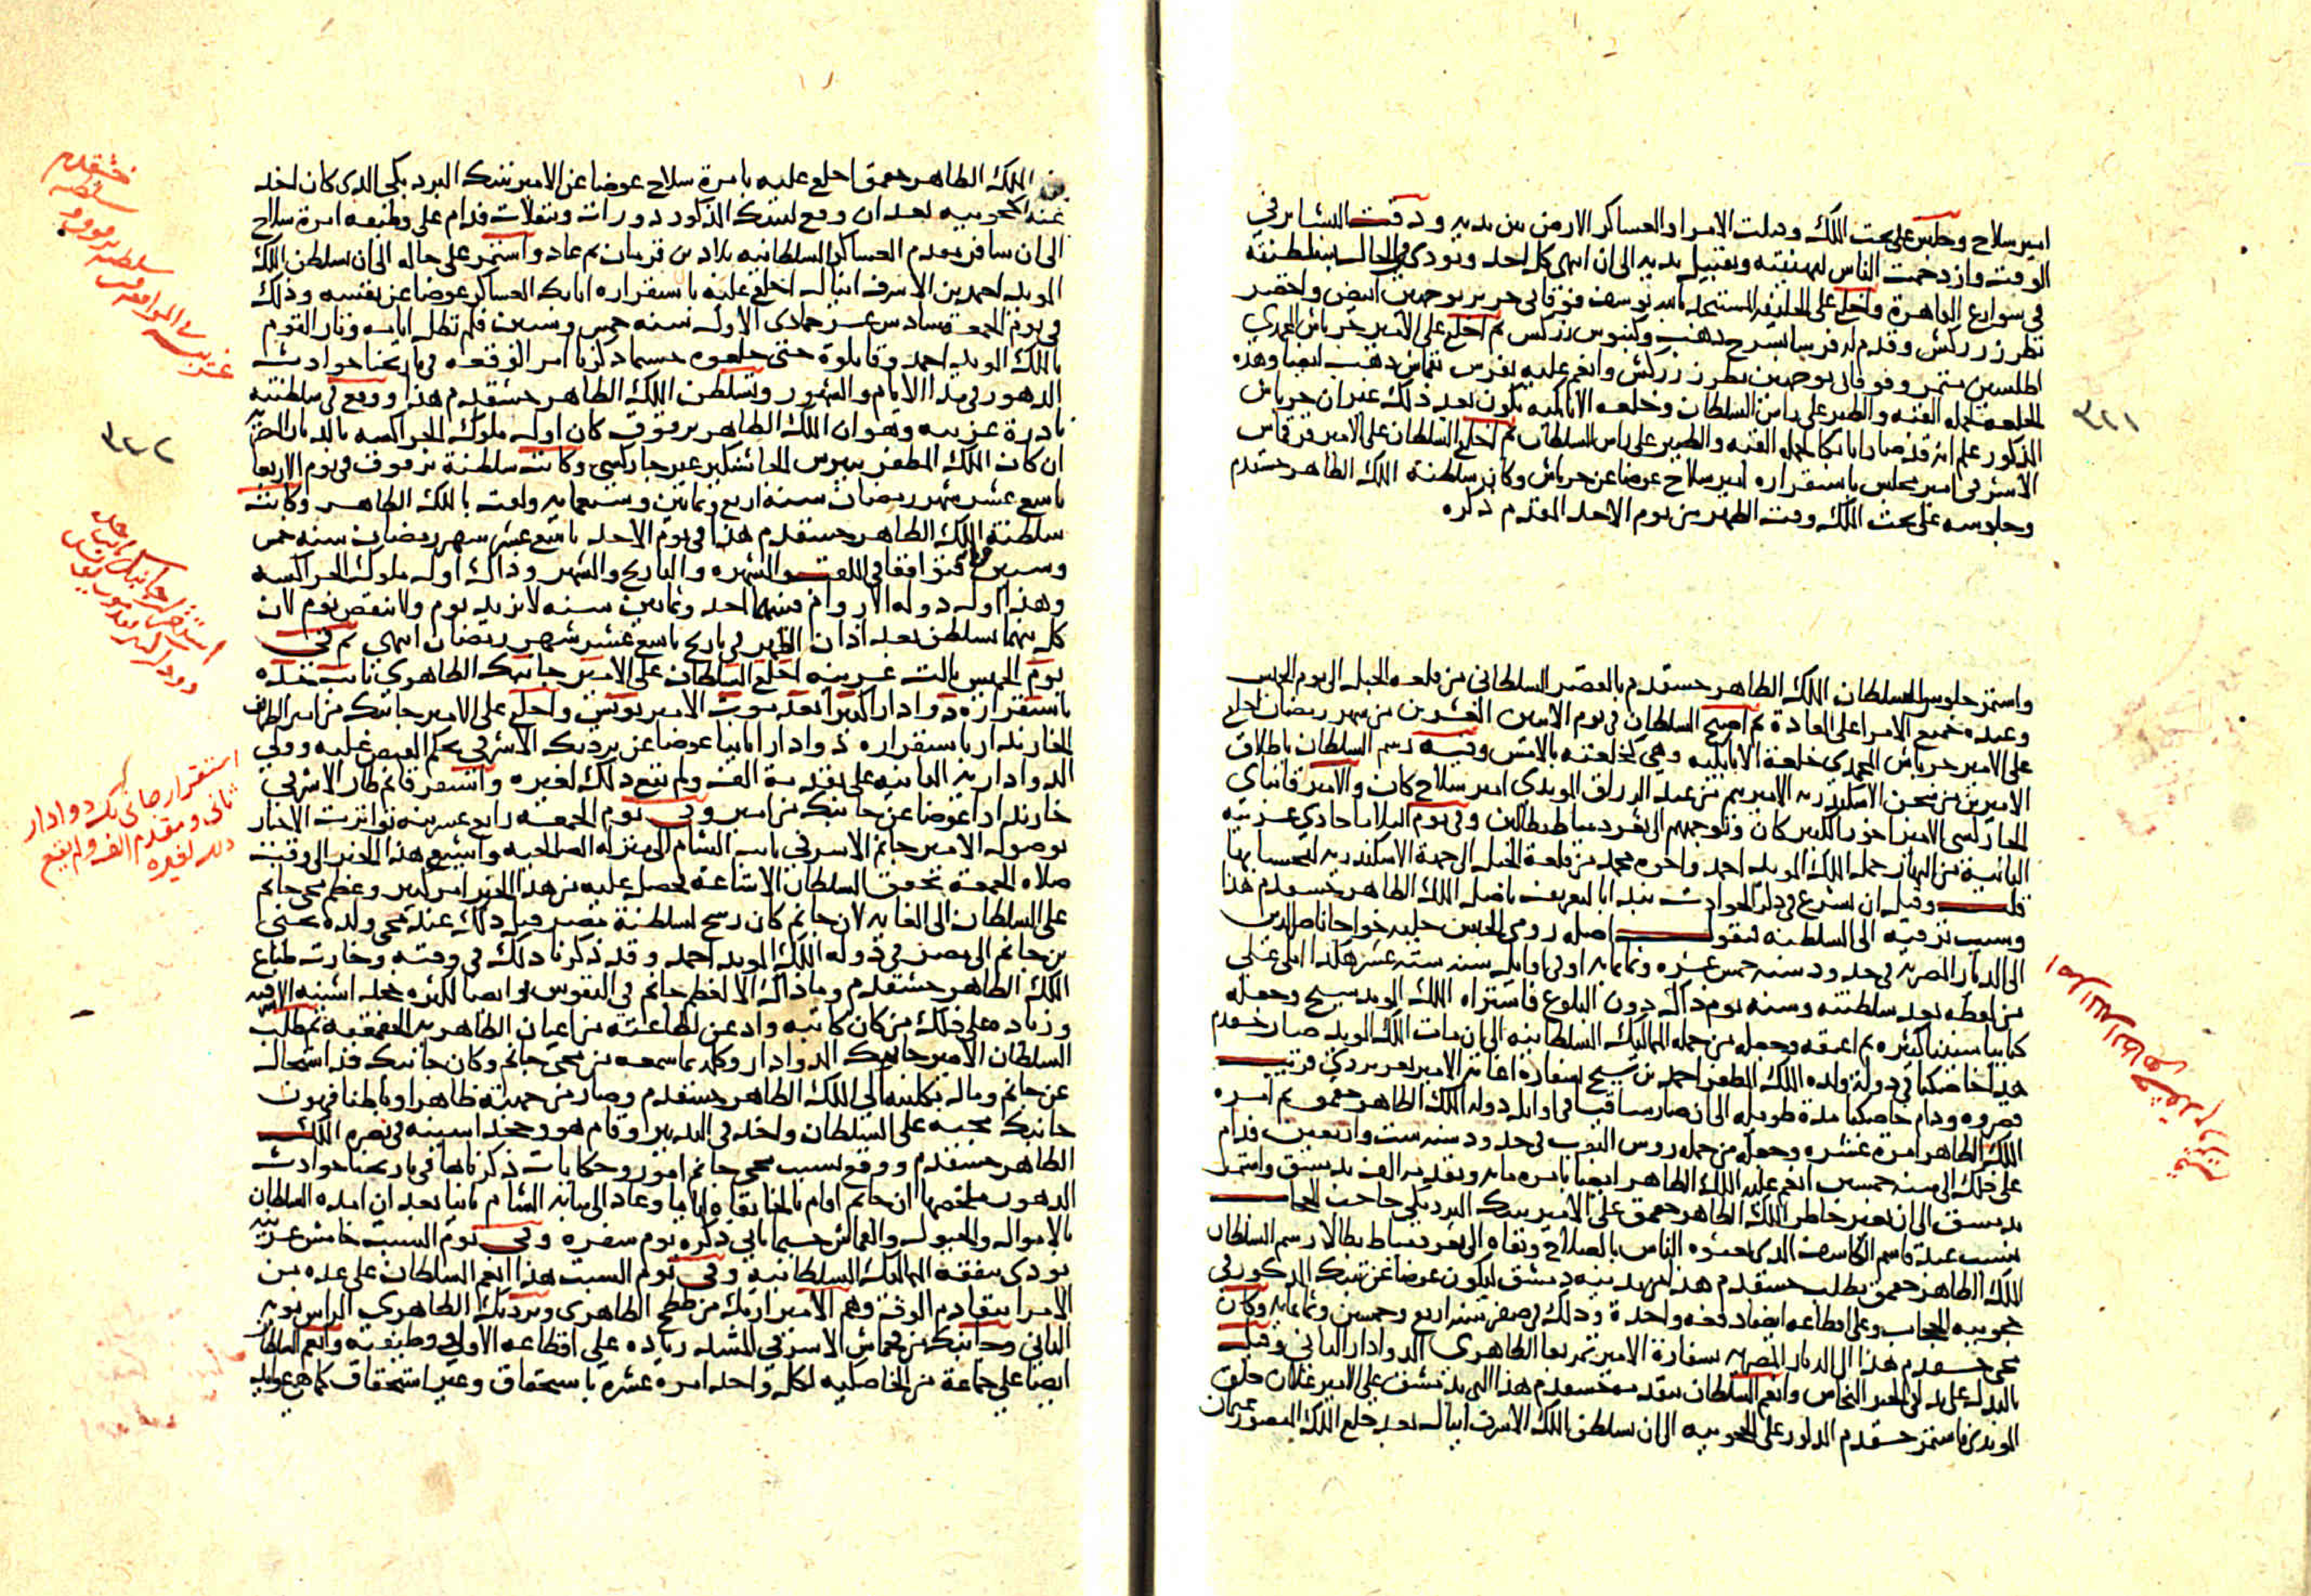 امير سلاح وجلس على تخت الملك وقبلت الامرا والعساكر الارض بين يديه ودقت البشاير في
الوقت وازدحمت الناس لتهنئته وتقبيل يديه الى ان انتهى كل احد ونودي في الحال بسلطنته
في شوارع القاهرة واخلع على الخليفة المستنجد بالله يوسف فوقاني حرير بوجهين ابيض واخضر
بطرز زركش وقدم له فرسا بسرج ذهب وكنبوش زركش ثم اخلع على الامير جرباش المحمدي
اطلسين متمر وفوقاني بوجهين بطرز زركش وانعم عليه بفرس بقماش ذهب ايضا وهذه
الخلعة لحمله القبة والطير على راس السلطان وخلعة الاتابكية تكون بعد ذلك غير ان جرباش
المذكور علم انه قد صار اتابكا لحمله القبة والطير على راس السلطان ثم اخلع السلطان على الامير قرقماس
الاشرفي امير مجلس باستقراره امير سلاح عوضا عن جرباش وكان سلطنة الملك الظاهر خشقدم
وجلوسه على تخت الملك وقت الظهر من يوم الاحد المقدم ذكره
واستمر جلوس السلطان الملك الظاهر خشقدم بالقصر السلطاني من قلعة الجبل الى يوم الخميس
وعنده جميع الامرا على العادة ثم اصبح السلطان في يوم الاثنين العشرين من شهر رمضان اخلع
على الامير جرباش المحمدي خلعة الاتابكية وهي كخلعته بالامس وفيه رسم السلطان باطلاق
الاميرين من سجن الاسكندرية الامير تمر من عبد الرزاق المويدي امير سلاح كان والامير قانباي
الجاركسي الامير اخور الكبير كان وتوجههم الى ثغر دمياط بطالين وفي يوم الثلاثا حادي عشرينه
الثانية من النهار حمل الملك المويد احمد واخوه محمد من قلعة الجبل الى جهة الاسكندرية ليحبسا بها
قلت وقبل ان نشرع في ذكر الحوادث نبدا بالتعريف باصل الملك الظاهر خشقدم هذا
وسبب ترقيه الى السلطنة فنقول اصله رومي الجنس جلبه خواجا ناصر الدين
الى الديار المصرية في حدود سنة خمس عشرة وثمانماية او في اوايل سنة ستة عشر هكذا املى علي
من لفظه بعد سلطنته وسنه يوم ذاك دون البلوغ فاشتراه الملك المويد شيخ وجعله
كتابيا سنينا كثيرة ثم اعتقه وجعله من جملة المماليك السلطانية الى ان مات الملك المويد صار خشقدم
هذا خاصكيا في دولة ولده الملك المظفر احمد بن شيخ بسفارة اغاته الامير تغري بردي قريب
قصروه ودام خاصكيا مدة طويلة الى ان صار ساقيا في اوايل دولة الملك الظاهر جقمق ثم امره
الملك الظاهر امرة عشرة وجعله من جملة روس النوب في حدود سنة ست واربعين فدام
على ذلك الى سنة خمسين انعم عليه الملك الظاهر ايضا بامرة ماية وتقدمة الف بدمشق واستمر
بدمشق الى ان تغير خاطر الملك الظاهر جقمق على الامير تنبك البردبكي حاجب الحجاب
بسبب عبد قاسم الكاشف الذي اعتقده الناس بالصلاح ونفاه الى ثغر دمياط بطالا رسم السلطان
الملك الظاهر جقمق بطلب خشقدم هذا من مدينة دمشق ليكون عوضا عن تنبك المذكور في
حجوبية الحجاب وعلى اقطاعه ايضا دفعة واحدة وذلك في صفر سنة اربع وخمسين وثمانماية وكان
مجي خشقدم هذا الى الديار المصرية بسفارة الامير تمربغا الظاهري الدوادار الثاني وقيل
بالبذل على يد ابي الخير النحاس وانعم السلطان بتقدمة خشقدم هذا التي بدمشق على الامير علان جلق
المويدي فاستمر خشقدم المذكور على الحجوبية الى ان تسلطن الملك الاشرف اينال بعد خلع الملك المنصور عثمان
٣٢١
اصل الملك الظاهر خشقدم
بن الملك الظاهر جقمق اخلع عليه بامرة سلاح عوضا عن الامير تنبك البردبكي الذي كان اخذ
عنه الحجوبية بعد ان وقع لتنبك المذكور دورات وتنقلات فدام على وظيفة امرة سلاح
الى ان سافر مقدم العساكر السلطانية بلاد بن قرمان ثم عاد واستمر على حاله الى ان تسلطن الملك
المويد احمد بن الاشرف اينال اخلع عليه باستقراره اتابك العساكر عوضا عن نفسه وذلك
في يوم الجمعة سادس عشر جمادى الاولى سنة خمس وستين فلم تطل ايامه وثار القوم
بالملك المويد احمد وقاتلوه حتى خلعوه حسبما ذكرنا امر الوقعة في تاريخنا حوادث
الدهور في مدا الايام والشهور وتسلطن الملك الظاهر خشقدم هذا ووقع في سلطنته
نادرة غريبة وهو ان الملك الظاهر برقوق كان اول ملوك الجراكسة بالديار المصرية
ان كان الملك المظفر بيبرس الجاشنكير غير جاركسي وكانت سلطنة برقوق في يوم الاربعا
تاسع عشر شهر رمضان سنة اربع وثمانين وسبعماية ولقب بالملك الظاهر وكانت
سلطنة الملك الظاهر خشقدم هذا في يوم الاحد تاسع عشر شهر رمضان سنة خمس
وستين فتوافقا في اللقب والشهرة والتاريخ والشهر وذاك اول ملوك الجراكسة
وهذا اول دولة الاروام فبينهما احد وثمانين سنة لا يزيد يوم ولا ينقص يوم لان
كل منهما تسلطن بعد اذان الظهر في تاريخ تاسع عشر شهر رمضان انتهى ثم في
يوم الخميس ثالث عشرينه اخلع السلطان على الامير جانبك الظاهري نايب جده
باستقراره دوادارا كبيرا بعد موت الامير يونس واخلع على الامير جانبك من امير الظريف
الخازندار باستقراره دوادارا ثانيا عوضا عن بردبك الاشرفي بحكم القبض عليه وولي
الدوادارية الثانية على تقدمة الف ولم يقع ذلك لغيره واستقر قانم طاز الاشرفي
خازندارا عوضا عن جانبك من امير وفي يوم الجمعة رابع عشرينه تواترت الاخبار
بوصول الامير جانم الاشرفي نايب الشام الى منزلة الصالحية واشيع هذا الخبر الى وقت
صلاة الجمعة تحقق السلطان الاشاعة فحصل عليه من هذا الخبر امر كبير وعظم مجي جانم
على السلطان الى الغاية لان جانم كان رسح لسلطنة مصر قبل ذلك عند مجي ولده يحيى
بن جانم الى مصر في دولة الملك المويد احمد وقد ذكرنا ذلك في وقته وخارت طباع
الملك الظاهر خشقدم وما ذاك الا لعظم جانم في النفوس وايضا لكثرة خجداشيته الاشرفية
وزيادة على ذلك من كان كاتبه واذعن لطاعته من اعيان الظاهرية الجقمقية ثم طلب
السلطان الامير جانبك الدوادار وكلمه بما سمعه من مجي جانم وكان جانبك قد استحال
عن جانم ومال بكليته الى الملك الظاهر خشقدم وصار من حزبه ظاهرا وباطنا فهون
جانبك مجيه على السلطان واخذ في التدبير وقام هو وخجداشيته في نصرة الملك
الظاهر خشقدم ووقع بسبب مجي جانم امور وحكايات ذكرناها في تاريخنا حوادث
الدهور ملخصها ان جانم اقام بالخانقاه اياما وعاد الى نيابة الشام ثانيا بعد ان امده السلطان
بالاموال والخيول والقماش حسبما ياتي ذكره يوم سفره وفي يوم السبت خامس عشرينه
نودي بنفقة المماليك السلطانية وفي يوم السبت هذا انعم السلطان على عدة من
الامرا بتقادم الوف وهم الامير ازبك من ططخ الظاهري وبردبك الظاهري الراس نوبة
الثاني وجانبك من قجماس الاشرفي المشد زيادة على اقطاعه الاولى ووظيفته وانعم السلطان
ايضا على جماعة من الخاصكية لكل واحد امرة عشرة باستحقاق وغير استحقاق كما هي عوايد
خشقدم
سلطنة
سلطنة برقوق
غريبة في الموافقة
٣٢٢
استقرار جانبك نايب جده
دوادار كبير بعد موت يونس
استقرار جاني بك دوادار
ثاني ومقدم الف ولم يقع
ذلك لغيره